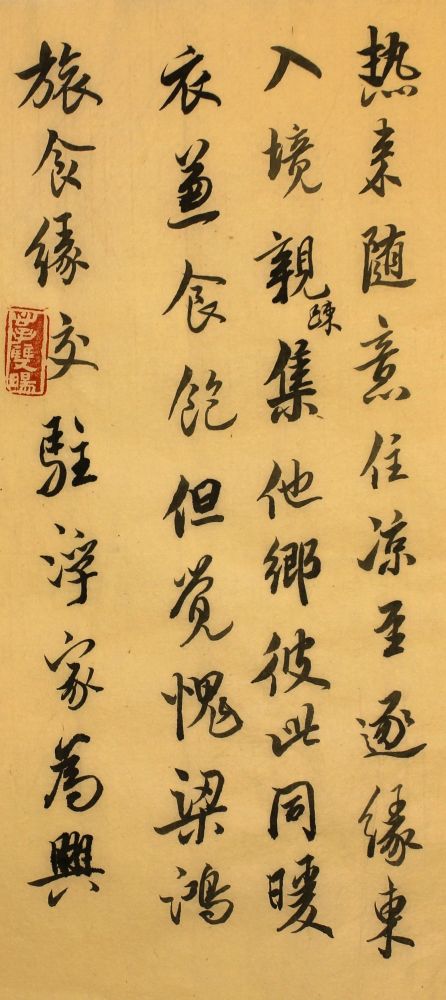 热来随意住凉至逐緣東
入境親疎集他鄉彼此同暖
衣兼食飽但覺愧梁鴻
旅食緣交駐浮家為興